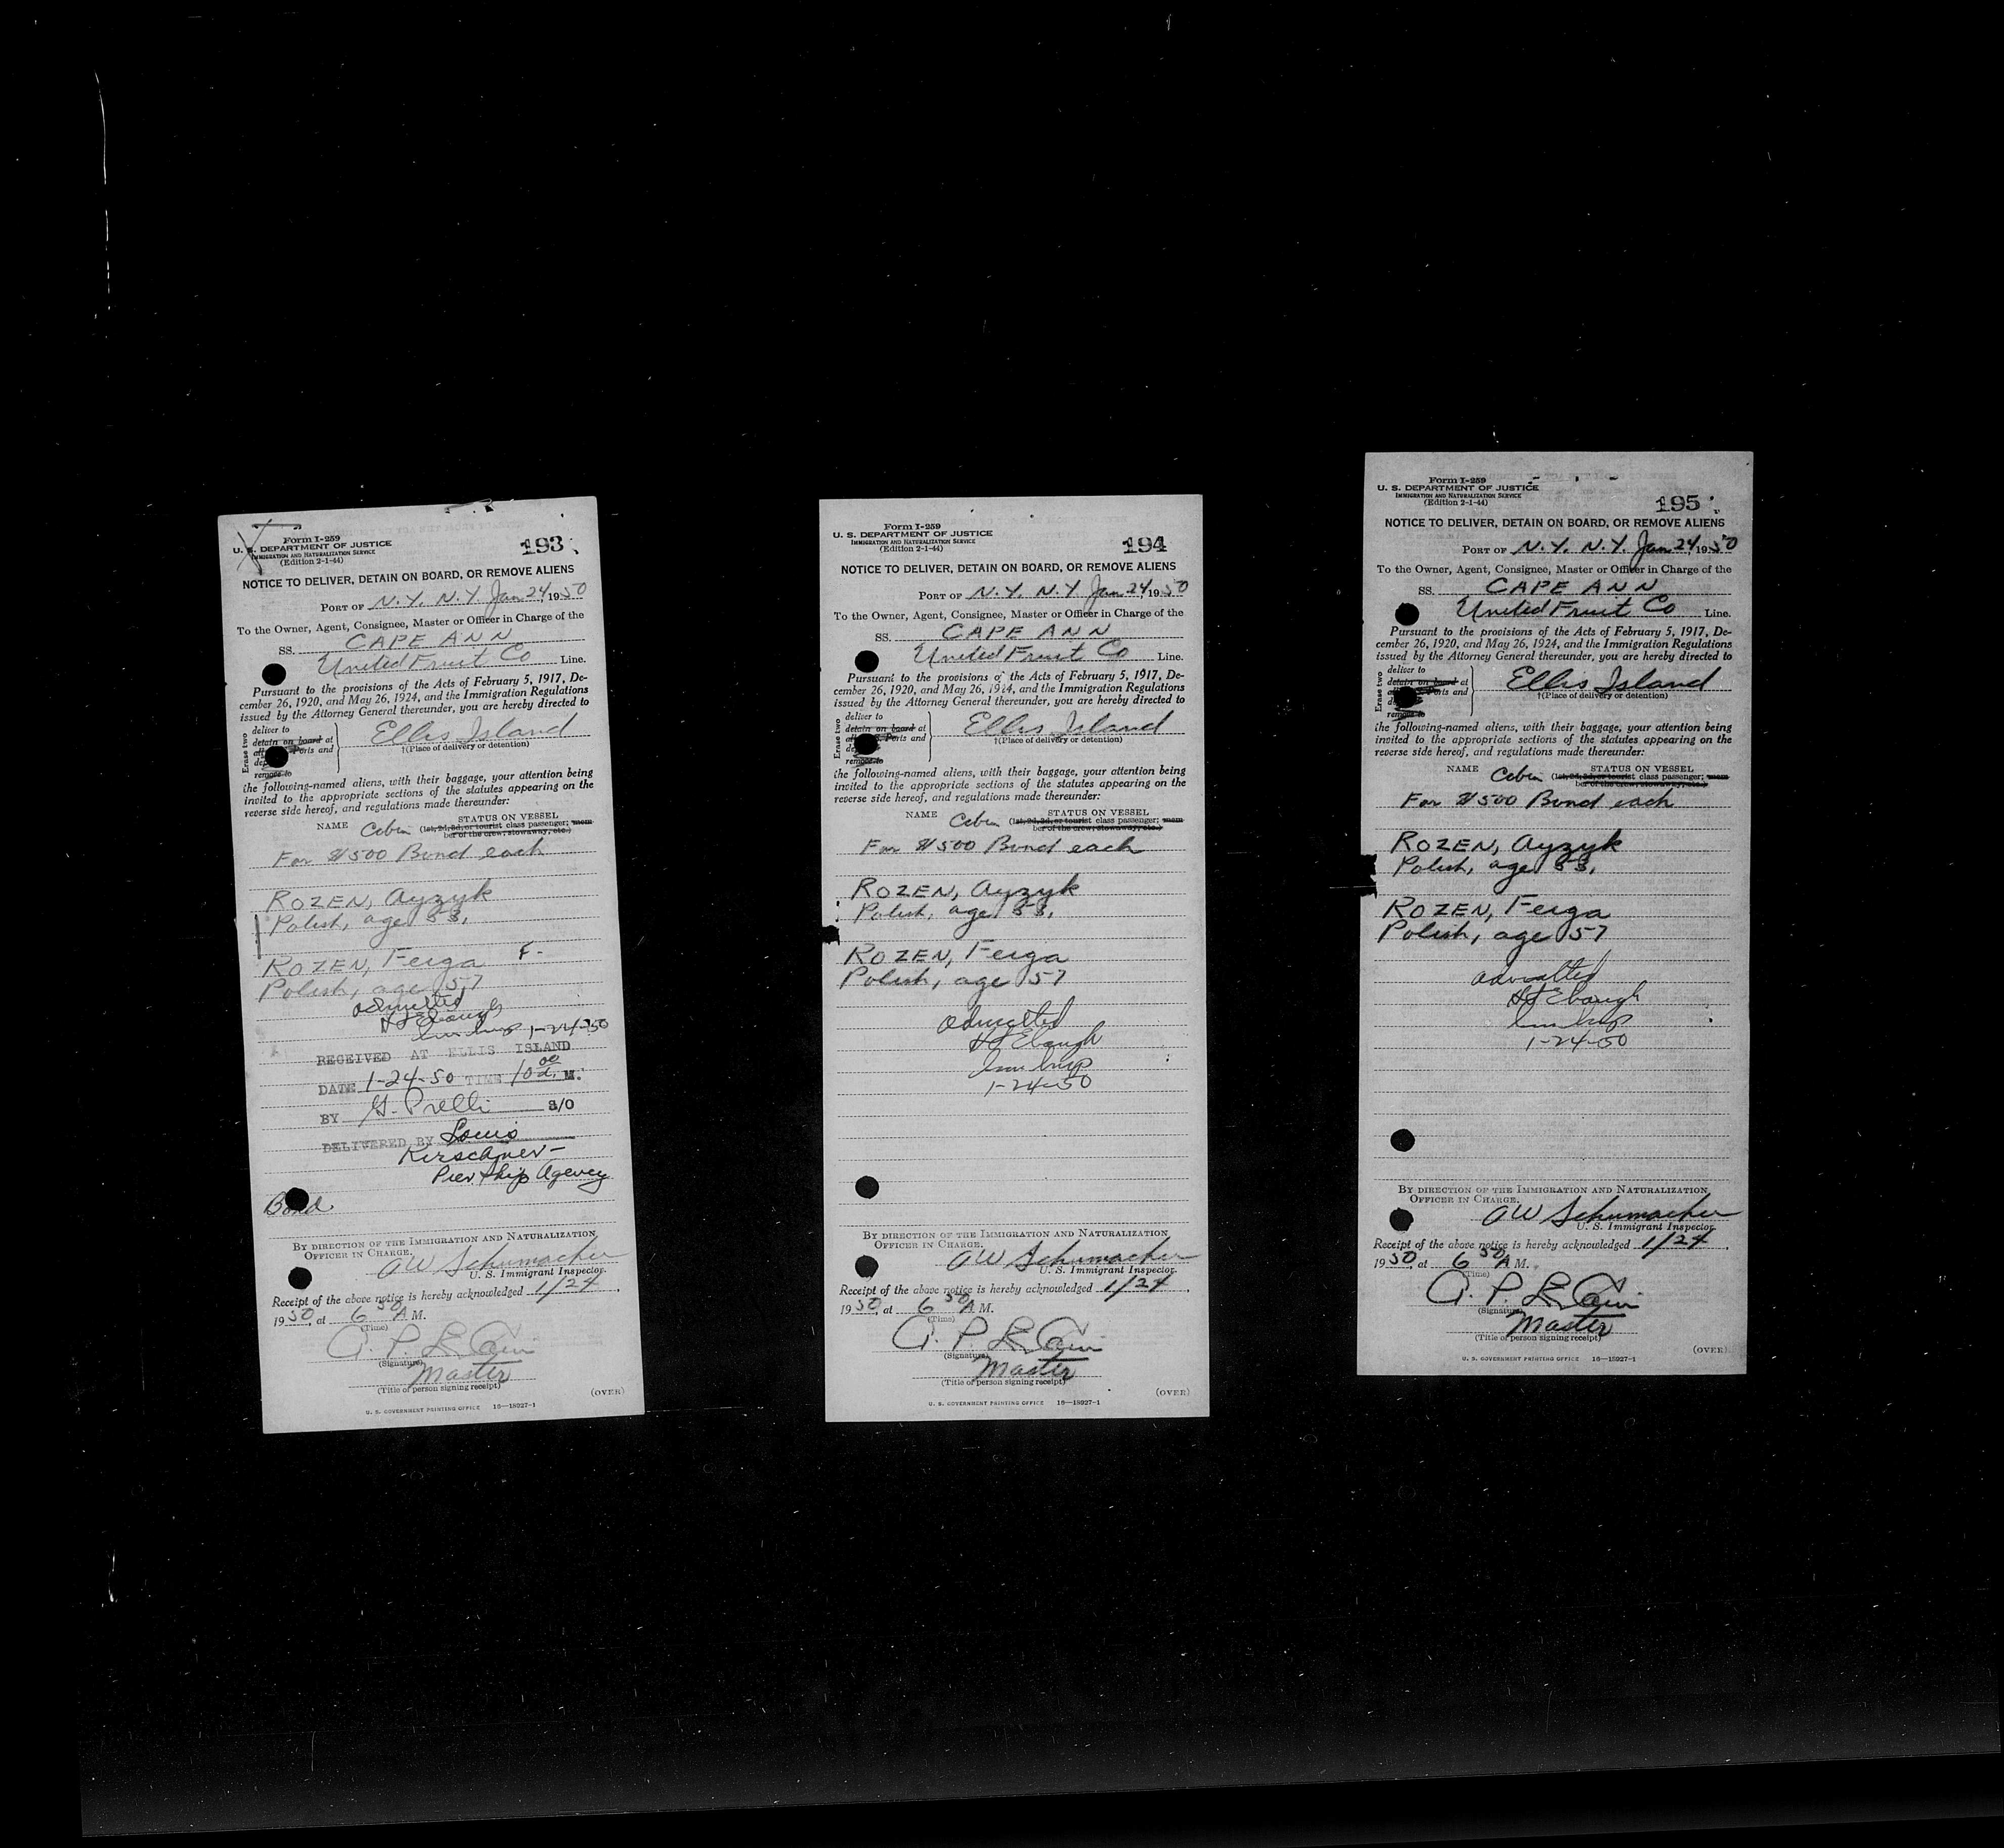 Form I-259
U. S. DEPARTMENT OF JUSTICE
IMMIGRATION AND NATURALIZATION SERVICE
(Edition 2-1-44)
193
NOTICE TO DELIVER, DETAIN ON BOARD, OR REMOVE ALIENS
PORT OF N.Y. N.Y. Jan 24, 1950
To the Owner, Agent, Consignee, Master or Officer in Charge of the
SS. CAPE ANN
United Fruit Co Line.
Pursuant to the provisions of the Acts of February 5, 1917, De-
cember 26, 1920, and May 26, 1924, and the Immigration Regulations
issued by the Attorney General thereunder, you are hereby directed to
Erase two
deliver to
detain on board at
Ports and
remove to
Ellis Island
†(Place of delivery or detention)
the following-named aliens, with their baggage, your attention being
invited to the appropriate sections of the statutes appearing on the
reverse side hereof, and regulations made thereunder:
NAME Cabin STATUS ON VESSEL
(1st, 2d, 3d, or tourist class passenger; mem
ber of the crew, stowaway, etc.)
For $500 Bond each
ROZEN, Ayzyk
Polish, age 53,
ROZEN, Feiga F-
Polish, age 57
admitted
Ebaugh
Imm Insp 1-24-50
RECEIVED AT ELLIS ISLAND
DATE 1-24-50 TIME 10 00 a. M.
BY G. Prelli S/O
DELIVERED BY Louis
Kirschner-
Pier Ship Agency
Bond
BY DIRECTION OF THE IMMIGRATION AND NATURALIZATION
OFFICER IN CHARGE.
AW Schumacher
U. S. Immigrant Inspector.
Receipt of the above notice is hereby acknowledged 1/24,
1950, at 6 50 A M.
(Time)
(Signature)
Master
(Title of person signing receipt)
(OVER)
U. S. GOVERNMENT PRINTING OFFICE 16—18927-1
Form I-259
U. S. DEPARTMENT OF JUSTICE
IMMIGRATION AND NATURALIZATION SERVICE
(Edition 2-1-44)
194
NOTICE TO DELIVER, DETAIN ON BOARD, OR REMOVE ALIENS
PORT OF N.Y. N.Y. Jan 24, 1950
To the Owner, Agent, Consignee, Master or Officer in Charge of the
SS. CAPE ANN
United Fruit Co Line.
Pursuant to the provisions of the Acts of February 5, 1917, De-
cember 26, 1920, and May 26, 1924, and the Immigration Regulations
issued by the Attorney General thereunder, you are hereby directed to
Erase two
deliver to
detain on board at
Ports and
remove to
Ellis Island
†(Place of delivery or detention)
the following-named aliens, with their baggage, your attention being
invited to the appropriate sections of the statutes appearing on the
reverse side hereof, and regulations made thereunder:
NAME Cabin STATUS ON VESSEL
(1st, 2d, 3d, or tourist class passenger; mem
ber of the crew, stowaway, etc.)
For $500 Bond each
ROZEN, Ayzyk
Polish, age 53,
ROZEN, Feiga
Polish, age 57
admitted
Ebaugh
Imm Insp
1-24-50
BY DIRECTION OF THE IMMIGRATION AND NATURALIZATION
OFFICER IN CHARGE.
AW Schumacher
U. S. Immigrant Inspector.
Receipt of the above notice is hereby acknowledged 1/24,
1950, at 6 50 A M.
(Time)
(Signature)
Master
(Title of person signing receipt)
(OVER)
U. S. GOVERNMENT PRINTING OFFICE 16—18927-1
Form I-259
U. S. DEPARTMENT OF JUSTICE
IMMIGRATION AND NATURALIZATION SERVICE
(Edition 2-1-44)
195
NOTICE TO DELIVER, DETAIN ON BOARD, OR REMOVE ALIENS
PORT OF N.Y. N.Y. Jan 24, 1950
To the Owner, Agent, Consignee, Master or Officer in Charge of the
SS. CAPE ANN
United Fruit Co Line.
Pursuant to the provisions of the Acts of February 5, 1917, De-
cember 26, 1920, and May 26, 1924, and the Immigration Regulations
issued by the Attorney General thereunder, you are hereby directed to
Erase two
deliver to
detain on board at
Ports and
remove to
Ellis Island
†(Place of delivery or detention)
the following-named aliens, with their baggage, your attention being
invited to the appropriate sections of the statutes appearing on the
reverse side hereof, and regulations made thereunder:
NAME Cabin STATUS ON VESSEL
(1st, 2d, 3d, or tourist class passenger; mem
ber of the crew, stowaway, etc.)
For $500 Bond each
ROZEN, Ayzyk
Polish, age 53,
ROZEN, Feiga
Polish, age 57
admitted
Ebaugh
Imm Insp
1-24-50
BY DIRECTION OF THE IMMIGRATION AND NATURALIZATION
OFFICER IN CHARGE.
AW Schumacher
U. S. Immigrant Inspector.
Receipt of the above notice is hereby acknowledged 1/24,
1950, at 6 50 A M.
(Time)
(Signature)
Master
(Title of person signing receipt)
(OVER)
U. S. GOVERNMENT PRINTING OFFICE 16—18927-1